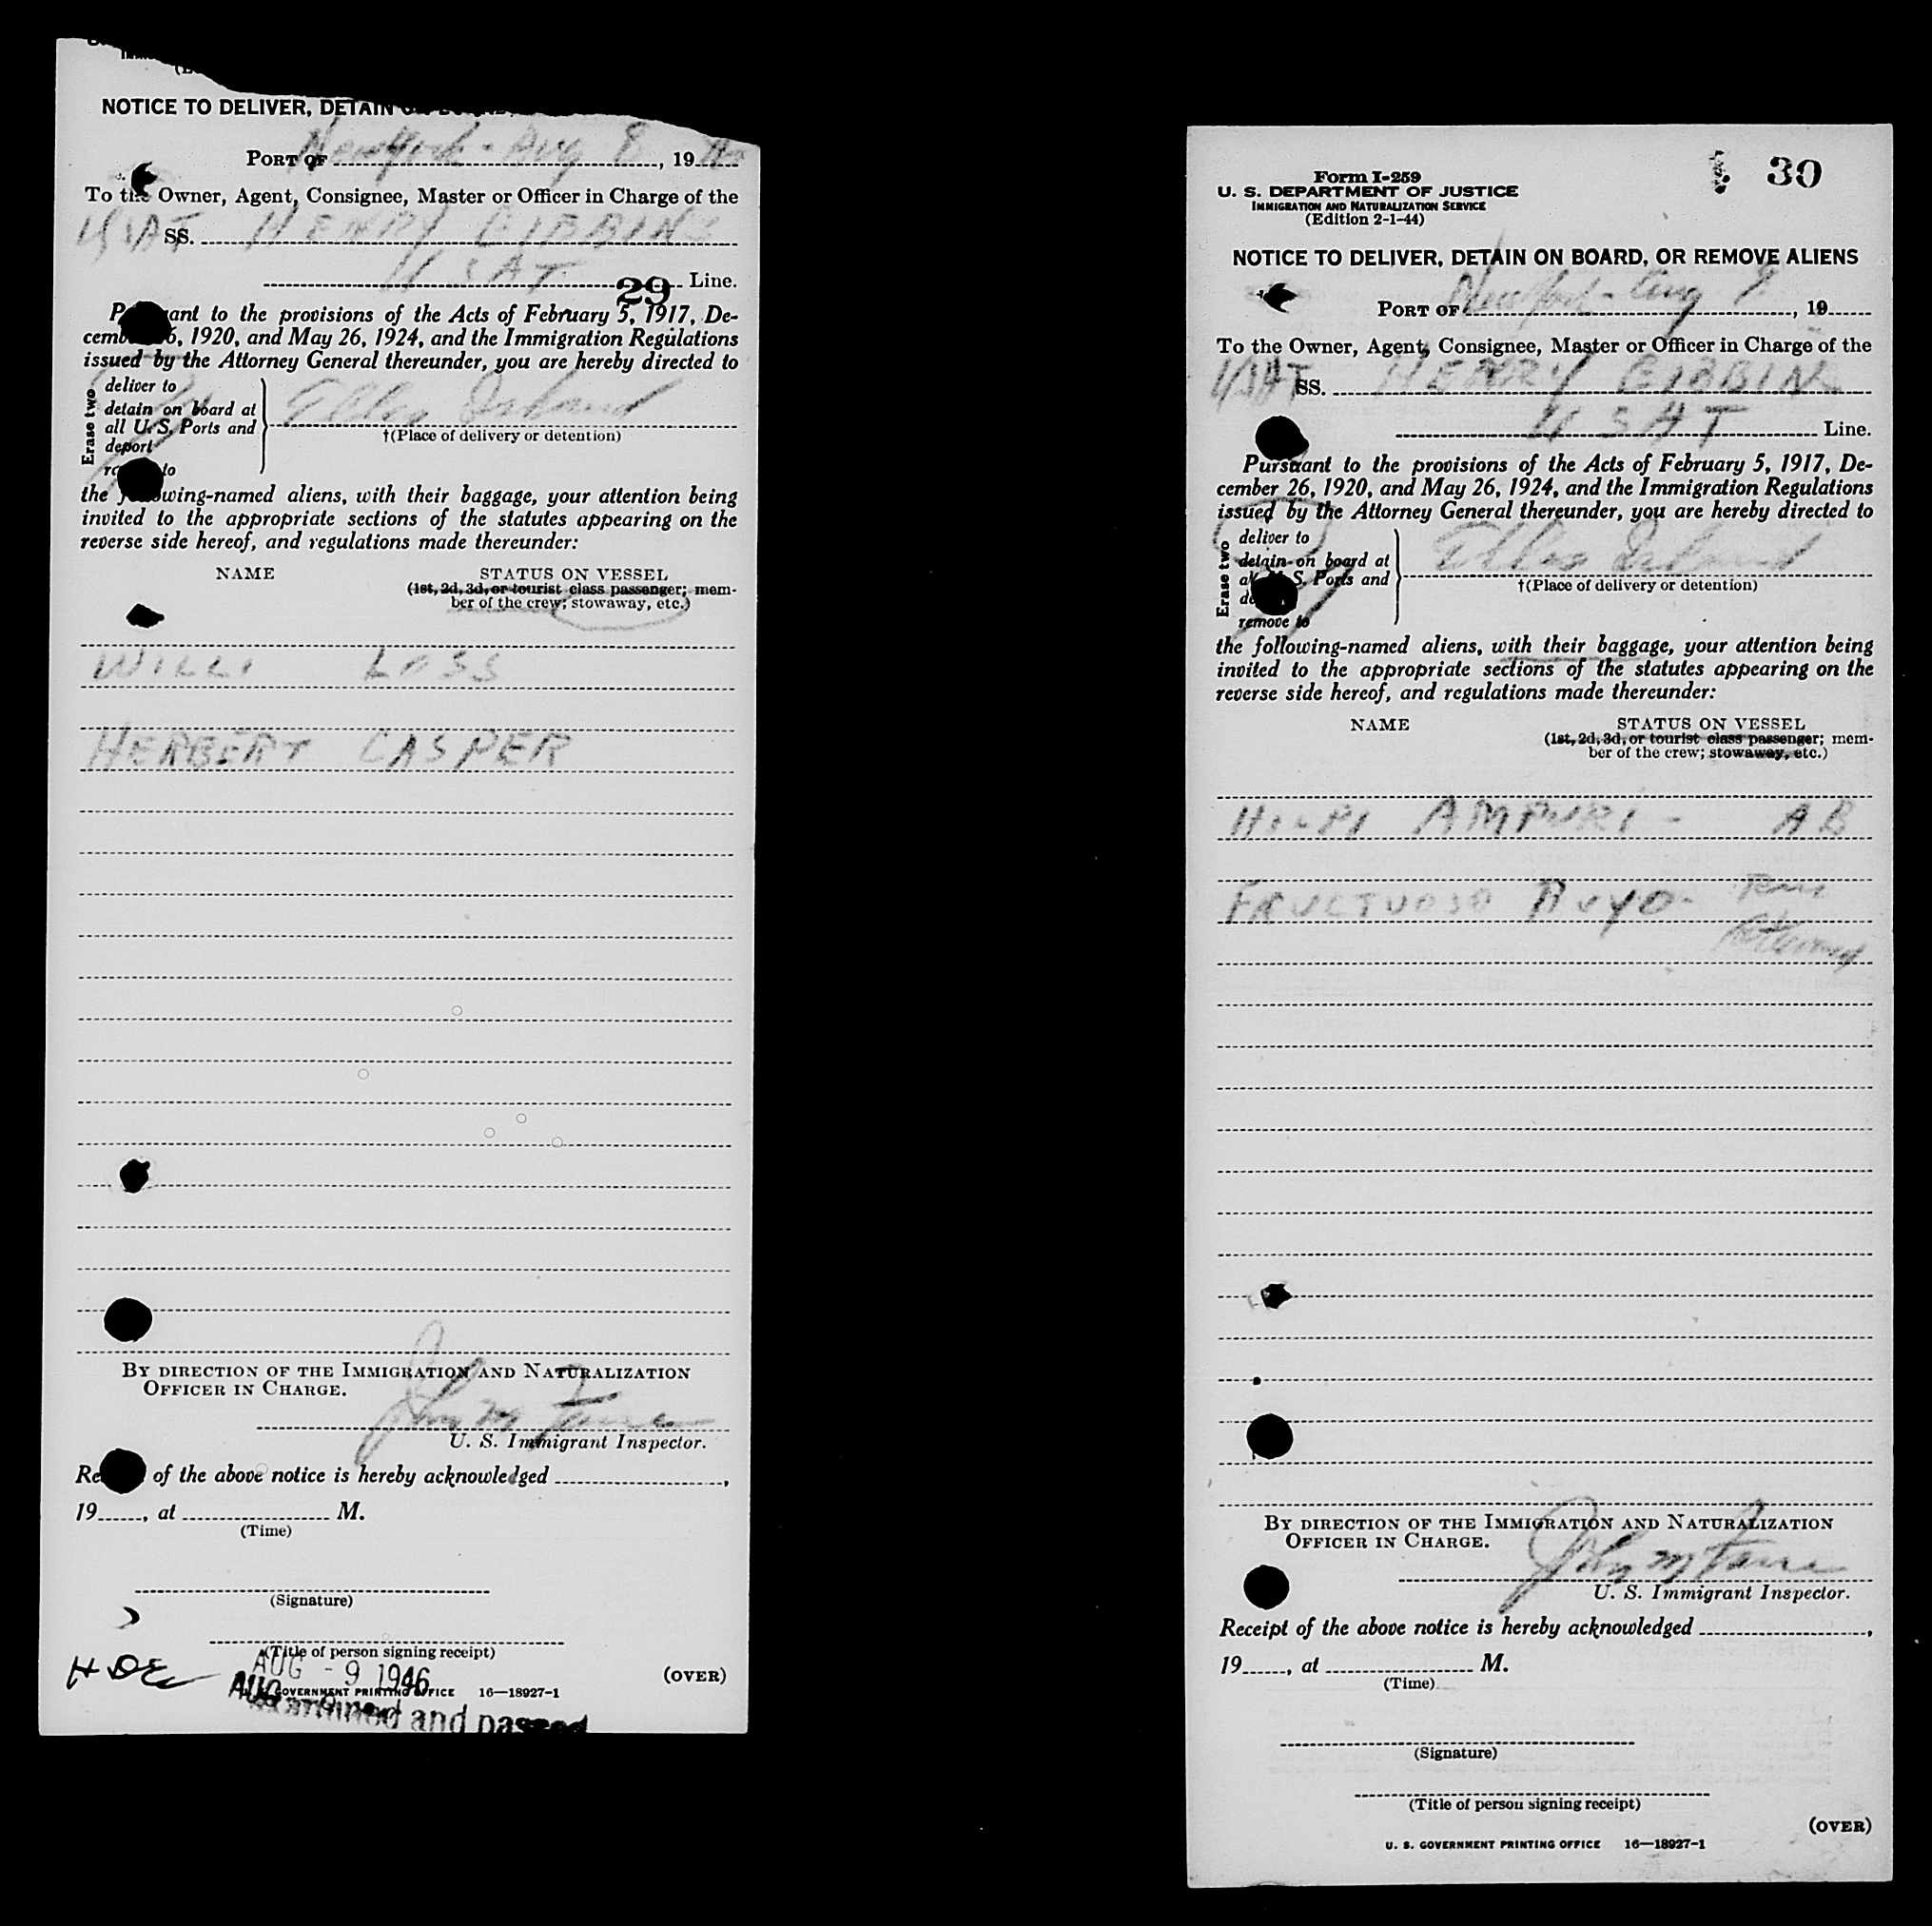 NOTICE TO DELIVER, DETAIN
PORT OF New York - Aug 8, 19
To the Owner, Agent, Consignee, Master or Officer in Charge of the
USAT SS. HENRY GIBBINS
USAT Line.
29
Pursuant to the provisions of the Acts of February 5, 1917, De-
cember 26, 1920, and May 26, 1924, and the Immigration Regulations
issued by the Attorney General thereunder, you are hereby directed to
Erase two
deliver to
detain on board at
all U. S. Ports and
deport
remove to
Ellis Island
†(Place of delivery or detention)
the following-named aliens, with their baggage, your attention being
invited to the appropriate sections of the statutes appearing on the
reverse side hereof, and regulations made thereunder:
NAME STATUS ON VESSEL
(1st, 2d, 3d, or tourist class passenger; mem-
ber of the crew; stowaway, etc.)
WILLI LOSS
HERBERT CASPER
BY DIRECTION OF THE IMMIGRATION AND NATURALIZATION
OFFICER IN CHARGE.
U. S. Immigrant Inspector.
Receipt of the above notice is hereby acknowledged ,
19 , at M.
(Time)
(Signature)
(Title of person signing receipt)
AUG - 9 1946
(OVER)
U. S. GOVERNMENT PRINTING OFFICE 16—18927-1
Examined and passed
30
Form I-259
U. S. DEPARTMENT OF JUSTICE
IMMIGRATION AND NATURALIZATION SERVICE
(Edition 2-1-44)
NOTICE TO DELIVER, DETAIN ON BOARD, OR REMOVE ALIENS
PORT OF New York - Aug 8, 19
To the Owner, Agent, Consignee, Master or Officer in Charge of the
USAT SS. HENRY GIBBINS
USAT Line.
Pursuant to the provisions of the Acts of February 5, 1917, De-
cember 26, 1920, and May 26, 1924, and the Immigration Regulations
issued by the Attorney General thereunder, you are hereby directed to
Erase two
deliver to
detain on board at
all U. S. Ports and
deport
remove to
Ellis Island
†(Place of delivery or detention)
the following-named aliens, with their baggage, your attention being
invited to the appropriate sections of the statutes appearing on the
reverse side hereof, and regulations made thereunder:
NAME STATUS ON VESSEL
(1st, 2d, 3d, or tourist class passenger; mem-
ber of the crew; stowaway, etc.)
AMPURI - AB
FRUCTUOSO RUYO -
BY DIRECTION OF THE IMMIGRATION AND NATURALIZATION
OFFICER IN CHARGE.
U. S. Immigrant Inspector.
Receipt of the above notice is hereby acknowledged ,
19 , at M.
(Time)
(Signature)
(Title of person signing receipt)
(OVER)
U. S. GOVERNMENT PRINTING OFFICE 16—18927-1